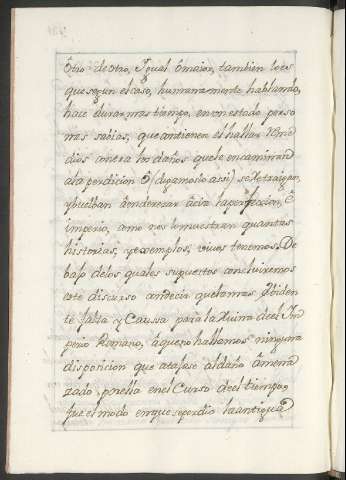 ôtro de otro, Igual ô maior, tambien lo es
que segun el caso, humanamente hablando,
hace durar mas tiempo, en un estado perso
nas sabias, que antienen el hallar Reme
dios contra los daños que le encaminan
a la perdicion ô (digamoslo asi) se Retraigan,
y buelban â enderezar âcia la perfeccion, e
imperio, como nos lo muestran quantas
historias, y exemplos, vivos tenemos. De
bajo de los quales supuestos concluiremos
este discurso con decir que la mas Ebiden
te falta y Caussa para la Ruina de el Im
perio Romano, â que no hallemos ninguna
disposicion que atajase al daño âmena
zado por ella en el Curso de el tiempo,
fue el modo en que se perdio la antigua